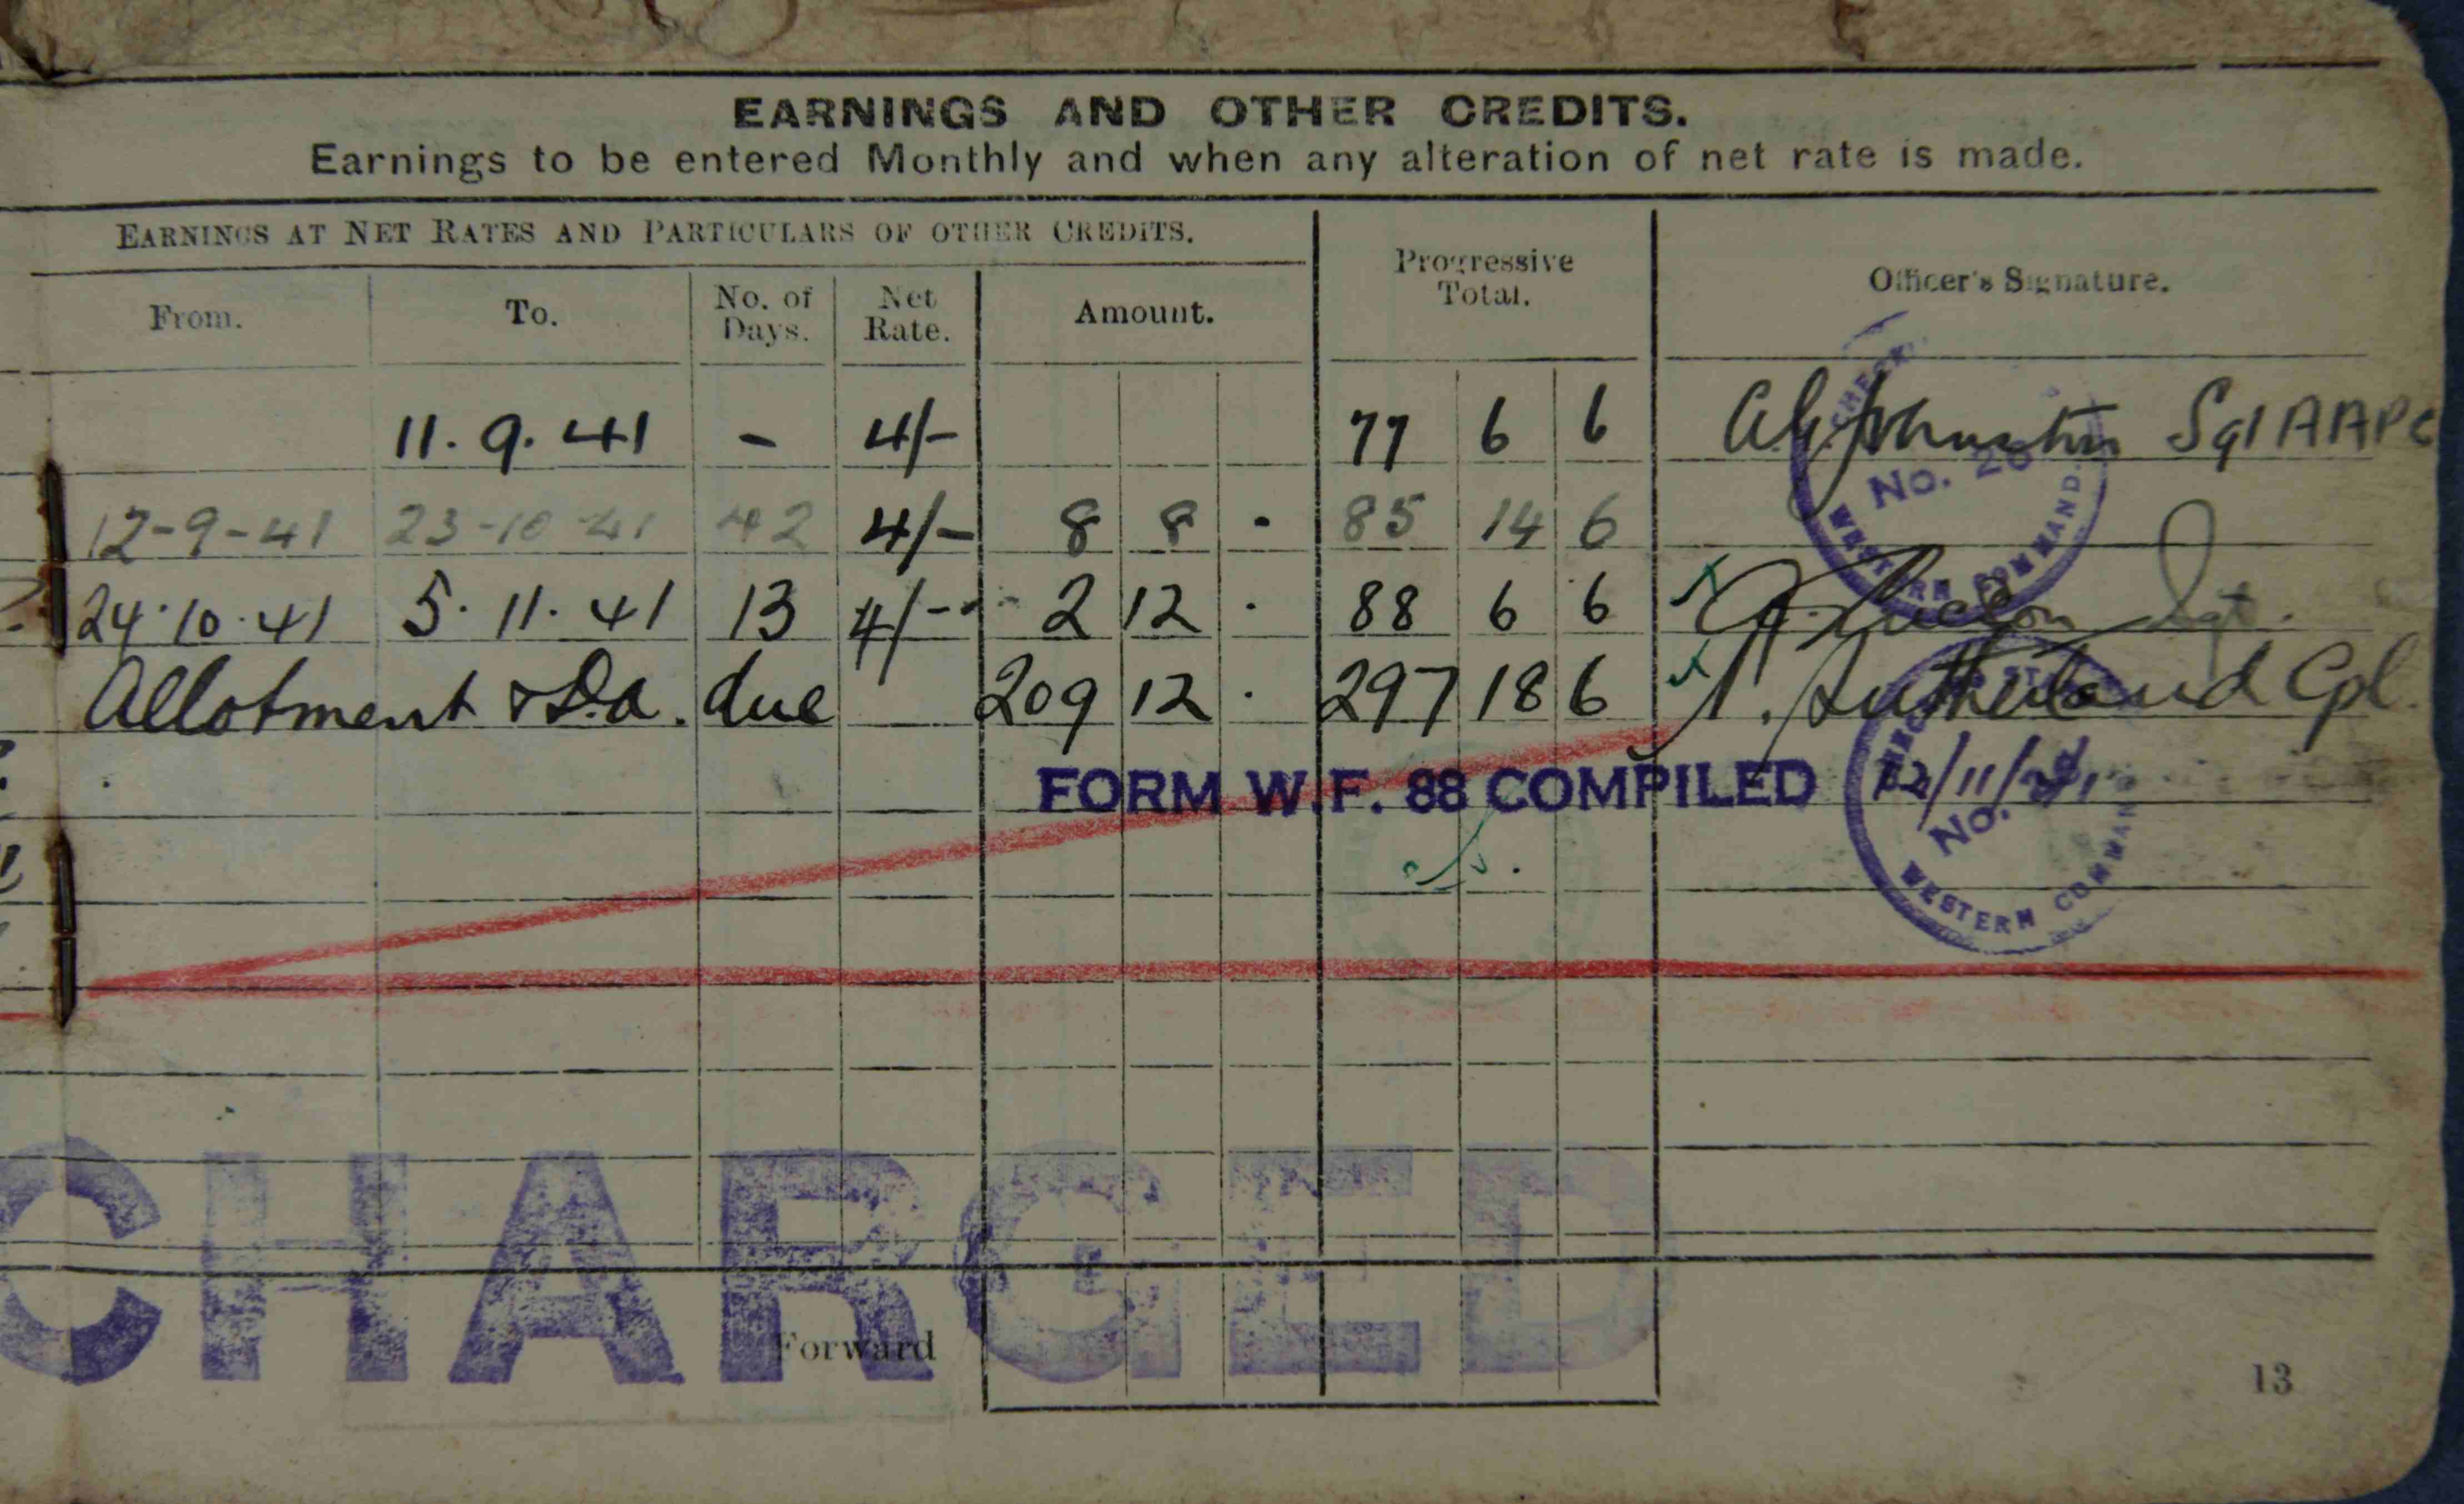 EARNINGS AND OTHER CREDITS.
Earnings to be entered Monthly and when any alteration of net rate is made.
EARNINGS AT NET RATES AND PARTICULARS OF OTHER CREDITS.
From. To. No. of Days. Net Rate. Amount. Progressive Total. Officer's Signature.
11.9.41 - 4/- 77 6 6 Sgt AAPC
12-9-41 23-10-41 42 4/- 8 8 · 85 14 6
24.10.41 5.11.41 13 4/- 2 12 · 88 6 6 Sgt.
Allotment & D.a. due 209 12 · 297 18 6 Sutherland Cpl.
CHECK No. 20 WESTERN COMMAND
FORM W.F. 88 COMPILED
No. WESTERN COMMAND
CHARGED
Forward
13